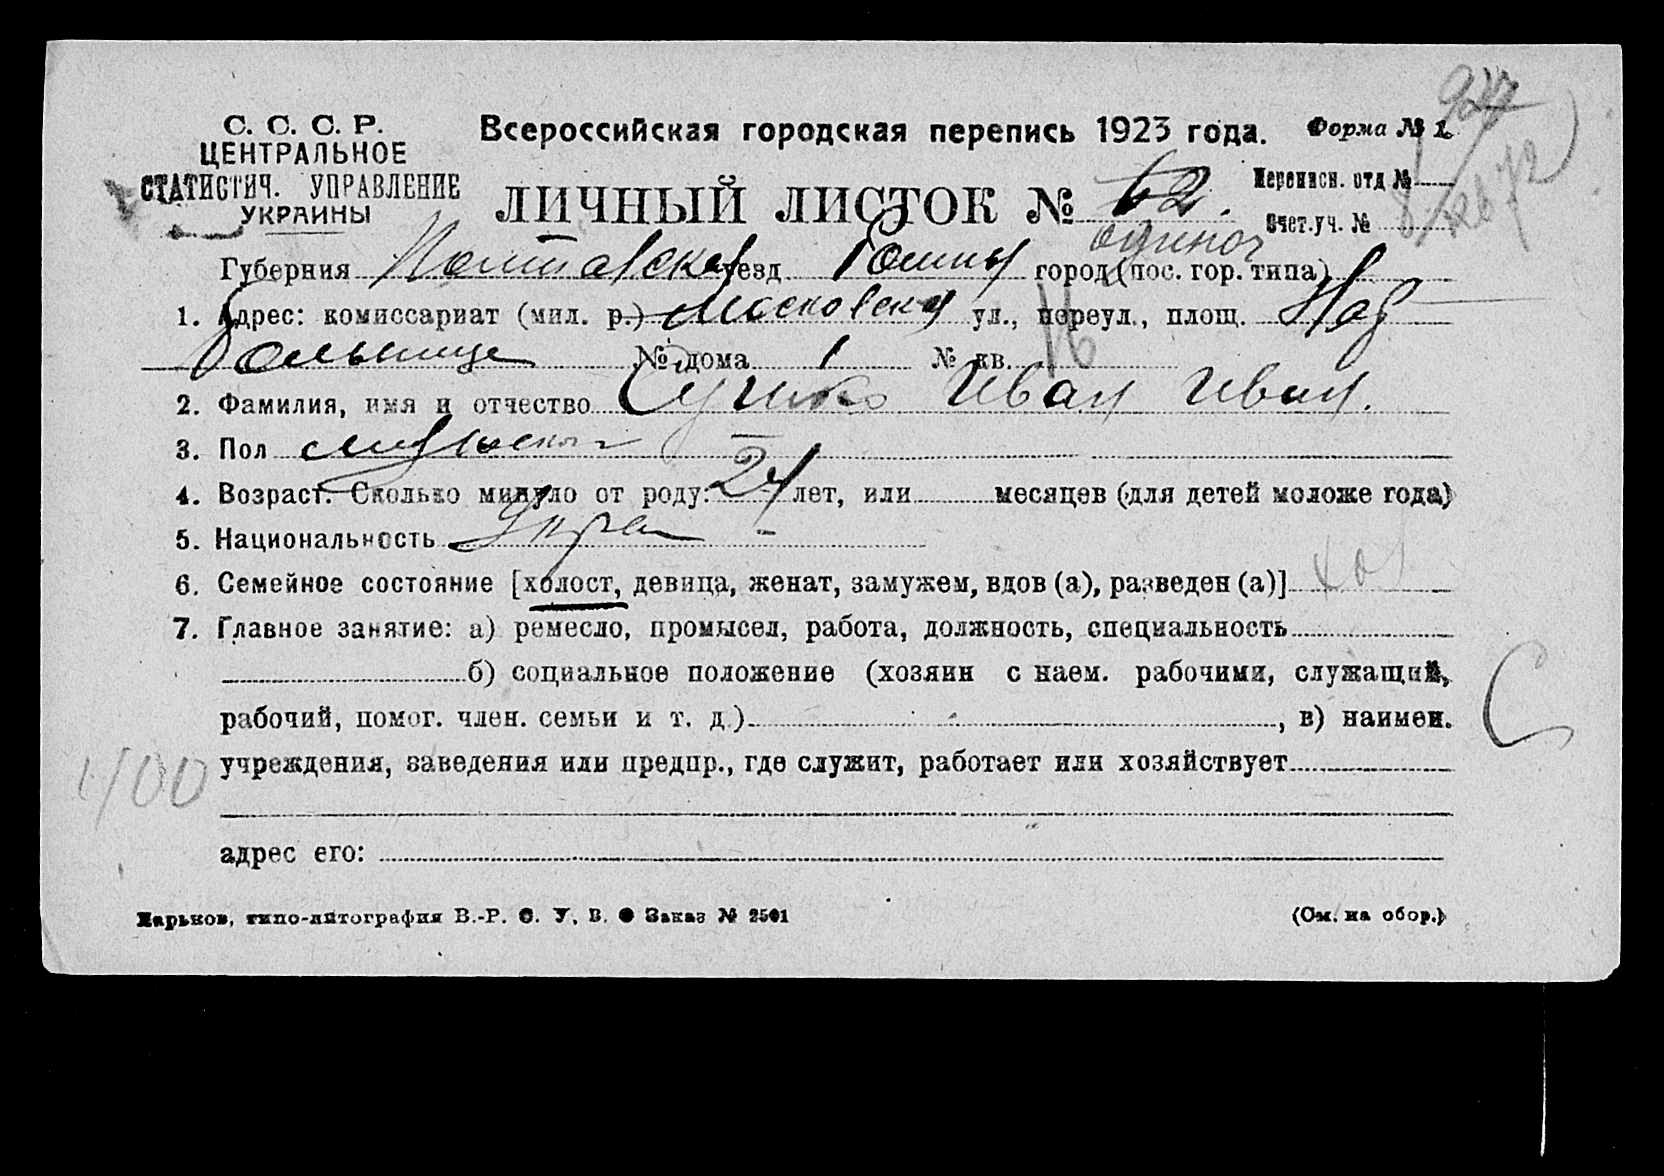 С. С. С. Р.
ЦЕНТРАЛЬНОЕ
СТАТИСТИЧ. УПРАВЛЕНИЕ
УКРАИНЫ
Всероссийская городская перепись 1923 года.
Форма № 1.
927
ЛИЧНЫЙ ЛИСТОК № 62.
Переписн. отд №
Счет.уч. №
одиноч
Губерния Полтавская уезд Ромны город (пос. гор. типа)
1. Адрес: комиссариат (мил. р.) Московская ул., переул., площ.
Больница № дома 1 № кв. 16
2. Фамилия, имя и отчество Сушко Иван Иван.
3. Пол мужской
4. Возраст. Сколько минуло от роду: 24 лет, или месяцев (для детей моложе года)
5. Национальность Укра
6. Семейное состояние [холост, девица, женат, замужем, вдов (а), разведен (а)] хол
7. Главное занятие: а) ремесло, промысел, работа, должность, специальность
б) социальное положение (хозяин с наем. рабочими, служащий,
рабочий, помог. член. семьи и т. д.) , в) наимен.
С
учреждения, заведения или предпр., где служит, работает или хозяйствует
400
адрес его:
Харьков, типо-литография В.-Р. С. У. В. Заказ № 2501
(См. на обор.)